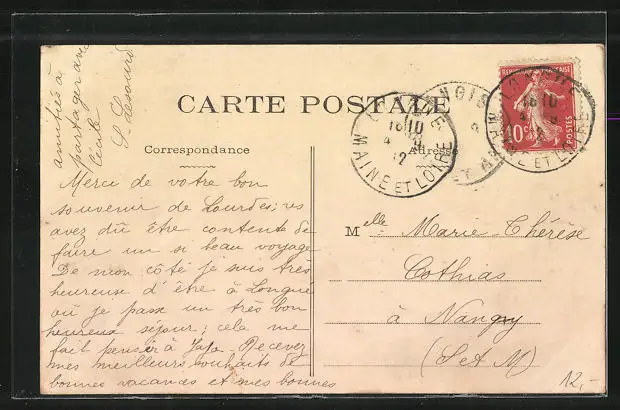 amitiés à
partager avec
Cécile
S. Lesourd
CARTE POSTALE
Correspondance
Adresse
Merci de votre bon
souvenir de Lourdes; vs
avez dû être contente de
faire un si beau voyage
De mon côté je suis très
heureuse d'être à Longué
où je passe un très bon
heureux séjour; cela me
fait penser à Jafa. Recevez
mes meilleurs souhaits de
bonnes vacances et mes bonnes
Melle Marie-Thérèse
Cothias
à Nangry
(S et M)
12,-
RÉPUBLIQUE FRANÇAISE
10c
POSTES
16 10
4 9
12
MAINE ET LOIRE
16 10
12
MAINE ET LOIRE